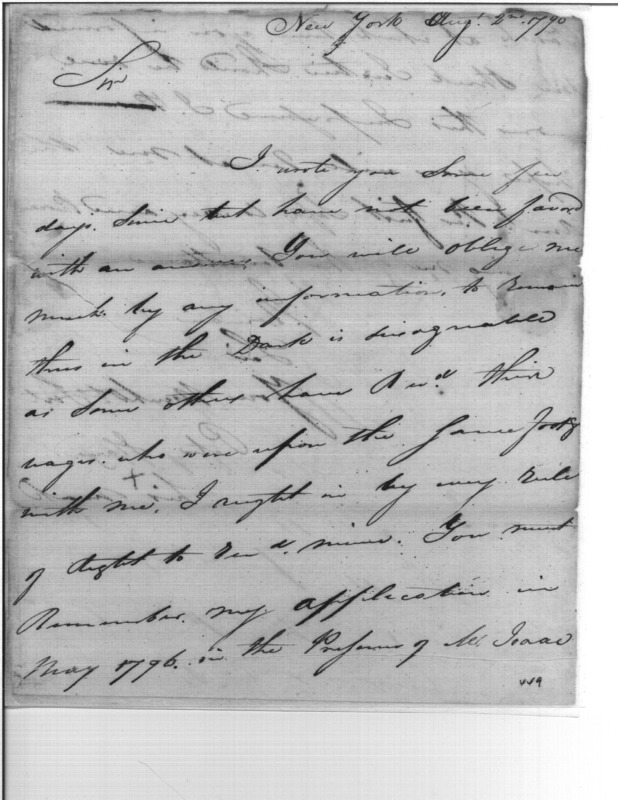 New York Augt. 2nd. 1790
Sir
I wrote you Some few
days. Since but have not been favord
with an answer, You will oblige me
much. by any information, to remain
thus in the Dark is disagreable
as Some others have Recd. their
wages. who were upon the Same footg
with me, I ought in by every rule
of Right to Recd. mine. You must
Remember. my application in
May 1796. in the Presence of Mr. Isaac
449